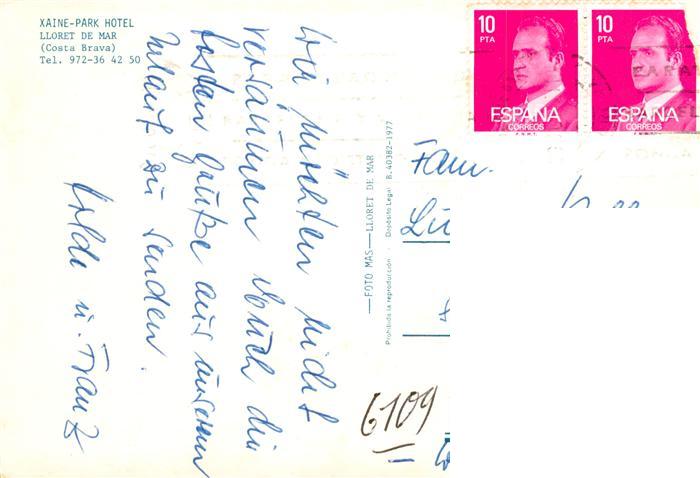 XAINE-PARK HOTEL
LLORET DE MAR
(Costa Brava)
Tel. 972-36 42 50
Wir möchten nicht
versäumen Euch die
besten Grüße aus unserem
Urlaub zu senden.
Hilde u. Franz
FOTO MAS — LLORET DE MAR
Prohibida la reproducción - Depósito Legal B. 40382-1977
10
PTA
ESPAÑA
CORREOS
F.N.M.T.
10
PTA
ESPAÑA
CORREOS
F.N.M.T.
Fam.
6109